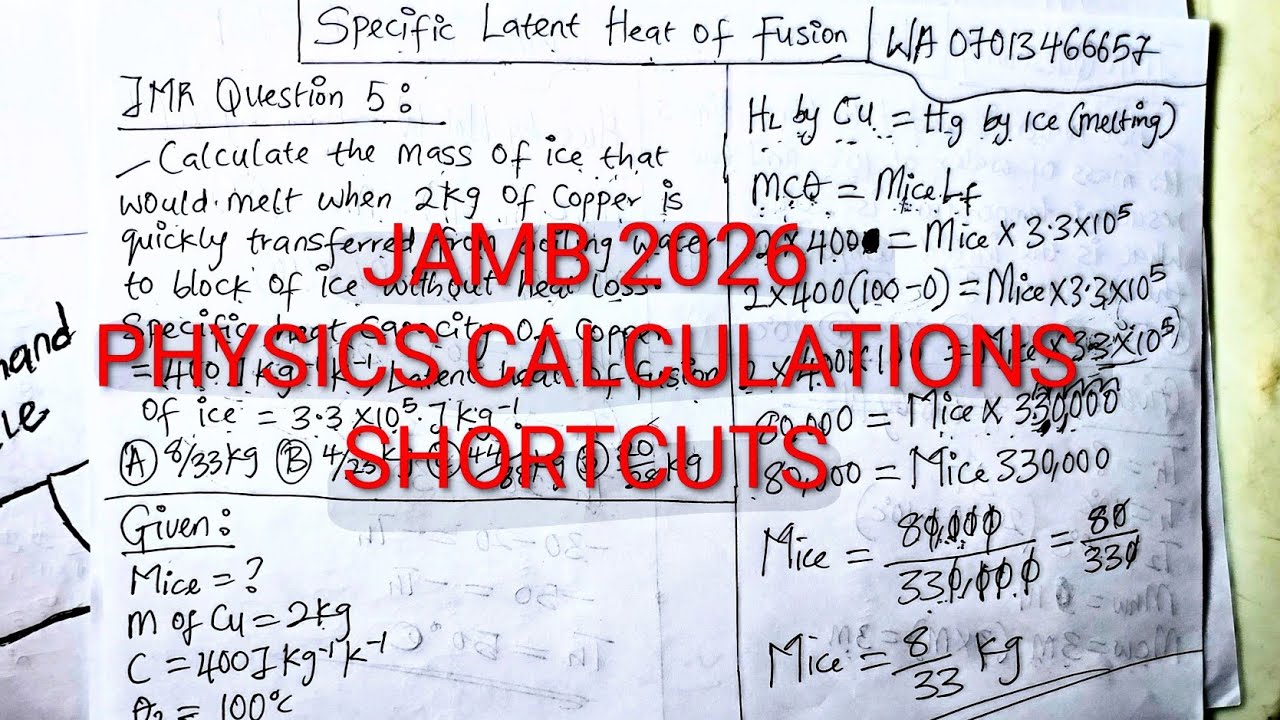 Specific Latent Heat of Fusion
WA 07013466657
JMR Question 5:
Calculate the mass of ice that
would melt when 2kg of Copper is
quickly transferred from boiling water
to block of ice without heat loss.
Specific heat Capacity of Copper
= 400Jkg⁻¹k⁻¹, Latent heat of fusion
of ice = 3.3×10⁵Jkg⁻¹
(A) 8/33kg (B)
Given:
Mice = ?
m of Cu = 2kg
C = 400Jkg⁻¹k⁻¹
θ₂ = 100°c
HL by Cu = Hg by ice (melting)
MCθ = Mice Lf
2×400 = Mice × 3.3×10⁵
2×400(100-0) = Mice × 3.3×10⁵
2×400×100 = Mice × 3.3×10⁵
80,000 = Mice × 330,000
80,000 = Mice 330,000
Mice = 80,000/330,000 = 80/330
Mice = 8/33 kg
JAMB 2026
PHYSICS CALCULATIONS
SHORTCUTS